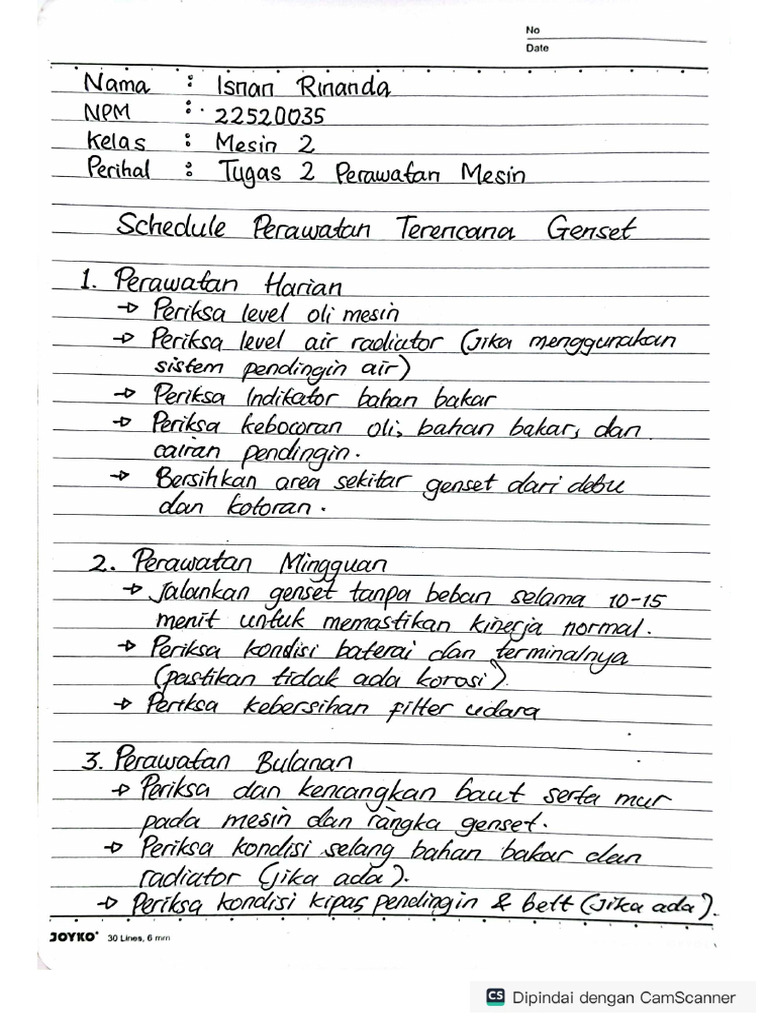 No
Date
Nama : Isnan Rinanda
NPM : 22520035
Kelas : Mesin 2
Perihal : Tugas 2 Perawatan Mesin
Schedule Perawatan Terencana Genset
1. Perawatan Harian
→ Periksa level oli mesin
→ Periksa level air radiator (jika menggunakan
sistem pendingin air)
→ Periksa Indikator bahan bakar
→ Periksa kebocoran oli, bahan bakar, dan
cairan pendingin.
→ Bersihkan area sekitar genset dari debu
dan kotoran.
2. Perawatan Mingguan
→ Jalankan genset tanpa beban selama 10-15
menit untuk memastikan kinerja normal.
→ Periksa kondisi baterai dan terminalnya
(pastikan tidak ada korosi).
→ Periksa kebersihan filter udara
3. Perawatan Bulanan
→ Periksa dan kencangkan baut serta mur
pada mesin dan rangka genset.
→ Periksa kondisi selang bahan bakar dan
radiator (jika ada).
→ Periksa kondisi kipas pendingin & belt (jika ada).
JOYKO 30 Lines, 6 mm
CS Dipindai dengan CamScanner